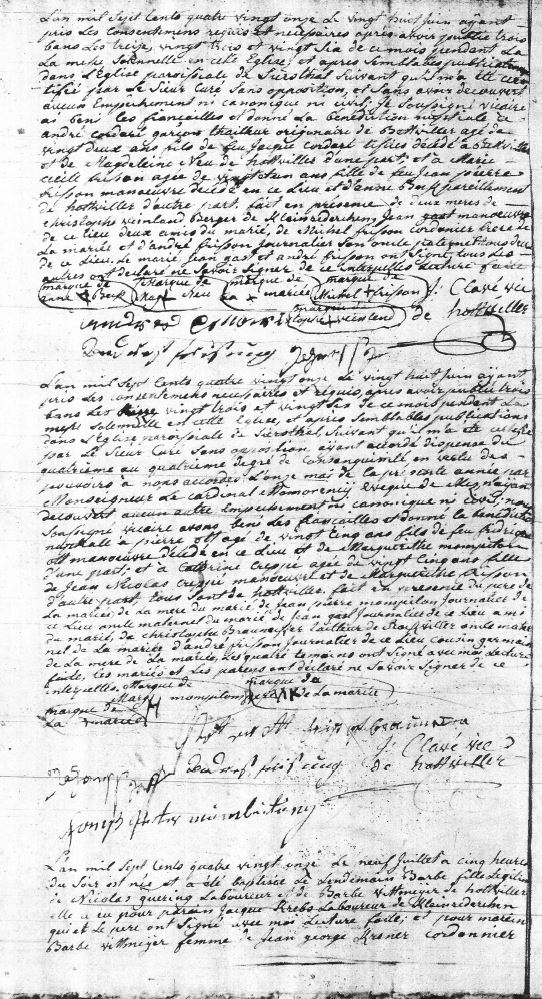 L'an mil sept cents quatre vingt onze le vingt huit juin ayant
pris les consentemens requis et necessaires après avoir publié trois
bans les treize, vingt trois et vingt six de ce mois pendant la
la messe solemnelle en cette Eglise, et apres semblables publications
dans l'Eglise paroissiale de Siersthal suivant qu'il m'a été cer
tifié par le Sieur Curé sans opposition, et sans avoir decouvert
aucun Empechement ni canonique ni civil, je soussigné vicaire
ai beni les fiançailles et donné la benediction nuptiale a
andré cordari garçon thailleur originaire de hottviller agé de
vingt deux ans fils de feu jacque cordari décédé a
et de Magdeleine Neu de hottviller d'une part; et a Marie
cecile frisson agée de vingt et un ans fille de feu jean pierre
frisson manoeuvre décédé en ce lieu et d'anne Beck pareillement
de hottviller d'autre part. fait en présence de deux meres de
christophe weinland Berger de Kleinrederchen, Jean gast manoeuvre
de ce lieu deux amis du marié, de Michel frisson cordonier frere de
la mariée et d'andré frisson journalier son oncle paternel tous deux
de ce lieu. Le marié jean gast et andré frisson ont signé, tous les
autres ont declaré ne savoir signer de ce interpellés lecture faite
marque de marque de marque de marque de
anne + Beck Mag + Neu la x mariée Michel + frisson j: Clavé vic
marque de christophe + weinland de hottviller
L'an mil sept cents quatre vingt onze le vingt huit juin ayant
pris les consentemens necessaires et requis, apres avoir publié trois
bans les vingt trois et vingt six de ce mois pendant la
messe solemnelle en cette Eglise, et apres semblables publications
dans l'Eglise paroissiale de Siersthal, suivant qu'il m'a été certifié
par le Sieur Curé sans opposition, ayant accordé dispense du
quatrieme au quatrieme degré de Consanguinité en vertu des
pouvoirs a nous accordés l'onze mai de la présente année par
Monseigneur le cardinal Momorency Eveque de Metz, n'ayant
decouvert aucun autre Empechement ni canonique ni civil, nous
soussigné vicaire avons beni les fiançailles et donné la benediction
nuptiale a pierre ott agé de vingt cinq ans fils de feu fridrique
ott manoeuvre décédé en ce lieu et de Marguerithe mompilon
d'une part; et a Catherine Creppé agée de vingt cinq ans fille
de Jean Nicolas Creppé manoeuvre et de Marguerithe frisson
d'autre part. tous sont de hottviller. fait en présence du pere de
la mariée; de la mere du marié de jean pierre mompilon journalier de
ce lieu oncle maternel du marié de Jean gast journalier de ce lieu ami
du marié, de christophe Braunecher tailleur de hottviller oncle mater
nel de la mariée d'andré frisson journalier de ce lieu cousin germain
de la mere de la mariée, les quatre temoins ont signé avec moi lecture
faite, les mariés et les parens ont déclaré ne savoir signer de ce
interpellés. Marque de marque du
marque de Marg H mompilon pere de la mariée
la x mariée
j: Clavé vic
de hottviller
L'an mil sept cents quatre vingt onze le neuf Juillet a cinq heures
du soir est née et a été baptisée le Lendemain Barbe fille Legitime
de Nicolas guering Laboureur et de Barbe vittmeyer de hottviller
elle a eu pour parain Jacque Krebs Laboureur de Kleinrederchen
qui et le pere ont signé avec moi Lecture faite; et pour maraine
Barbe vittmeyer femme de Jean george Kremer cordonnier